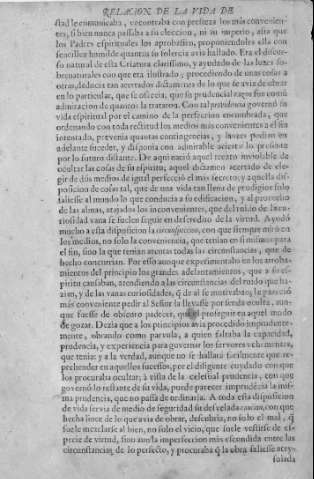 RELACION DE LA VIDA DE
se le comunicaba, encontraba con presteza los mas convenien-
tes, si bien nunca passaba a su eleccion, ni su imperio, asta que
los Padres espirituales los aprobassen, proponiendoles ella con
sencillez humilde quantos su tolerancia avia hallado. Era el discur-
so natural de esta Criatura clarissimo, y ayudado de las luzes so-
brenaturales con que era ilustrado; procediendo de unas cosas a
otras, deducia tan acertado dictamen de lo que se avia de obrar
en lo particular, que se ofrecia, que su prudencial razon fue comun
admiracion de quantos la trataron. Con tal prudencia governò su
vida espiritual por el camino de la perfeccion encumbrada, que
ordenando con toda rectitud los medios mas convenientes a el fin
intentado, prevenia quantas contingencias, y lances podian en
adelante suceder, y disponia con admirable acierto lo presente
por lo futuro distante. De aqui naciò aquel recato inviolable de
ocultar las cosas de su espiritu, aquel dictamen acertado de ele-
gir de dos medios de igual perfeccion el mas secreto; y aquella dis-
posicion de cosas tal, que de una vida tan llena de prodigios solo
saliesse al mundo lo que conducia a su edificacion, y al provecho
de las almas, atajados los inconvenientes, que del ruido de la cu-
riosidad vana se suelen seguir en descredito de la virtud. Ayudò
mucho a esta disposicion la circunspeccion, con que siempre mirò en
los medios, no solo la conveniencia, que tenian en si mismos para
el fin, sino la que tenian atentas todas las circunstancias, que de
hecho concurrian. Por esso aunque experimentaba en los arroba-
mientos del principio los grandes adelantamientos, que a su es-
piritu causaban, atendiendo a las circunstancias del ruido que ha-
zian, y de las vanas curiosidades, q̃ da al se motivaban, la pareciò
mas conveniente pedir al Señor la llevasse por senda oculta, aun-
que fuesse de obscuro padecer, que el proseguir en aquel modo
de gozar. Dezia que a los principios avia procedido imprudente-
mente, obrando como parvula, a quien faltaba la capacidad,
prudencia, y experiencia para governar los fervores vehementes,
que tenia: y a la verdad, aunque no se hallarà facilmente que re-
prehender en aquellos sucessos, por el diligente cuydado con que
los procuraba ocultar; à vista de la celestial prudencia, con que
governò lo restante de su vida, puede parecer imprudẽcia la mis-
ma prudencia, que no passa de ordinaria. A toda esta disposicion
de vida servia de medio de seguridad su desvelada caucion, con que
hecha lince de lo que avia de obrar, descubria, no solo el mal, q̃
suele mezclarse al bien, no solo el vicio, que suele vestirse de es-
pecie de virtud, sino aun la imperfeccion mas escondida entre las
circunstancias de lo perfecto, y procuraba q̃ la obra saliesse acry-
solada